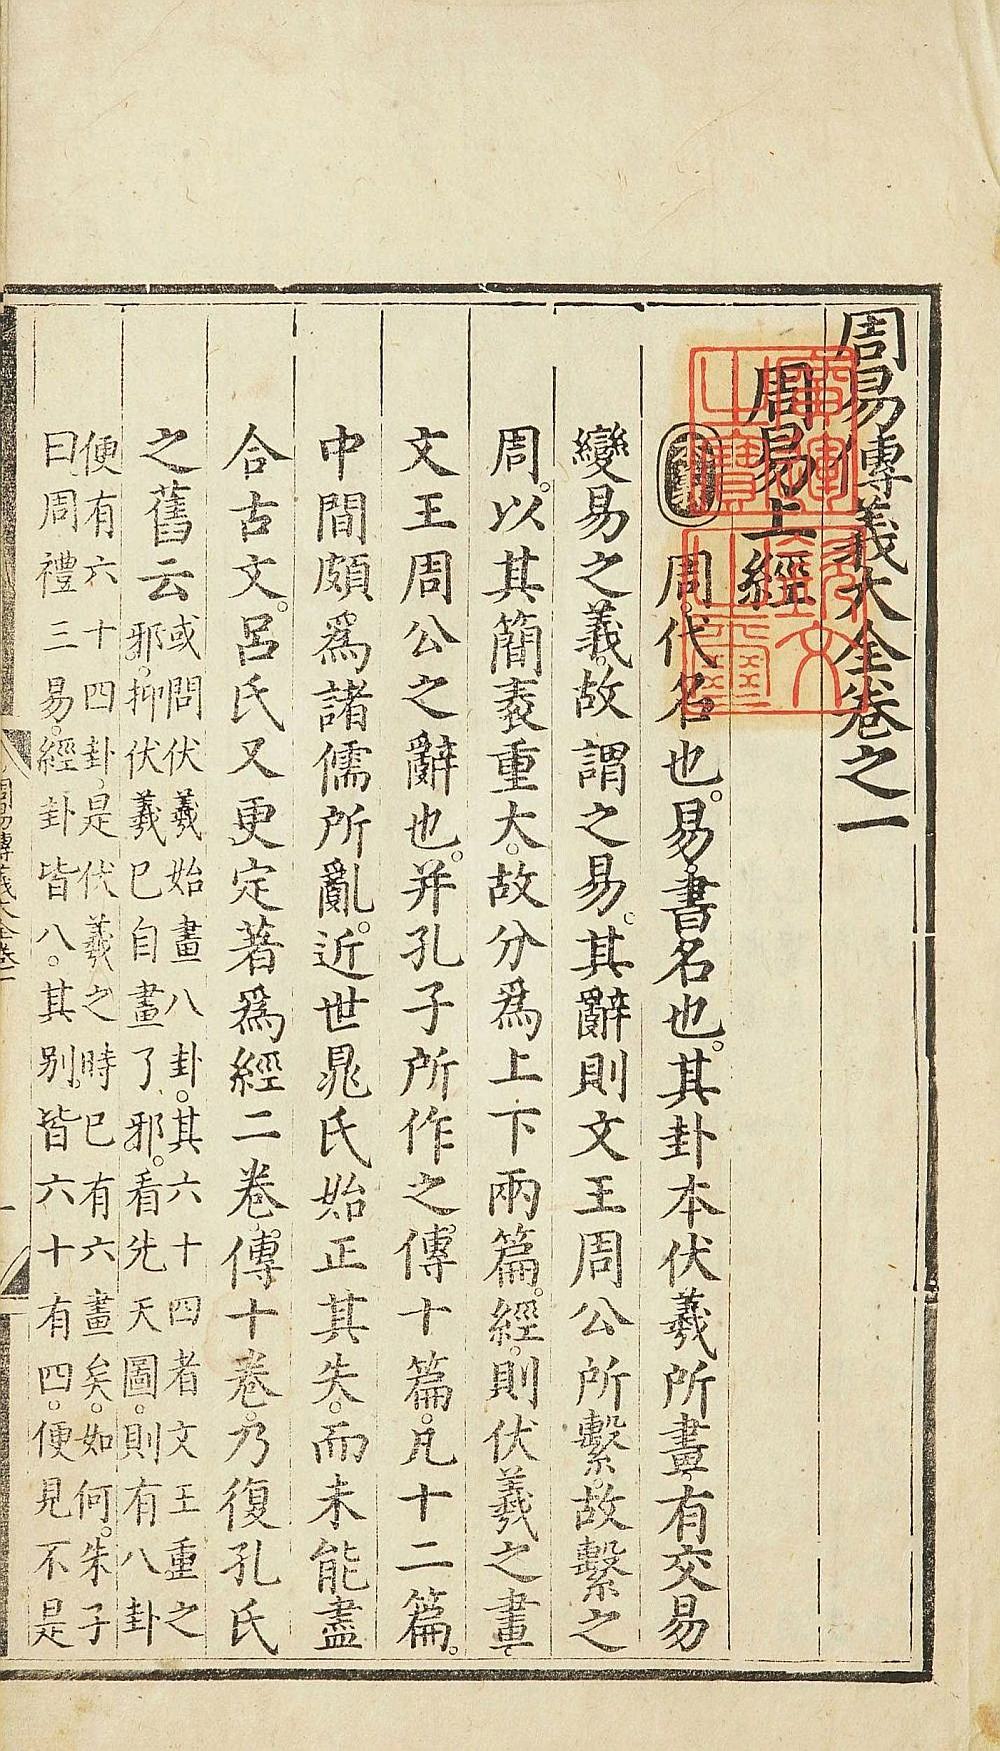 周易傳義大全卷之一
周易上經
本義 周。代名也。易。書名也。其卦本伏羲所畫。有交易
變易之義。故謂之易。其辭則文王周公所繫。故繫之
周。以其簡袠重大。故分爲上下兩篇。經。則伏羲之畫。
文王周公之辭也。并孔子所作之傳十篇。凡十二篇。
中間頗爲諸儒所亂。近世晁氏始正其失。而未能盡
合古文。呂氏又更定著爲經二卷。傳十卷。乃復孔氏
之舊云
或問伏羲始畫八卦。其六十四者文王重之
邪。抑伏羲已自畫了邪。看先天圖。則有八卦
便有六十四卦。是伏羲之時已有六畫矣。如何。朱子
曰。周禮三易。經卦皆八。其別。皆六十有四。便見不是
周易傳義大全卷一
一